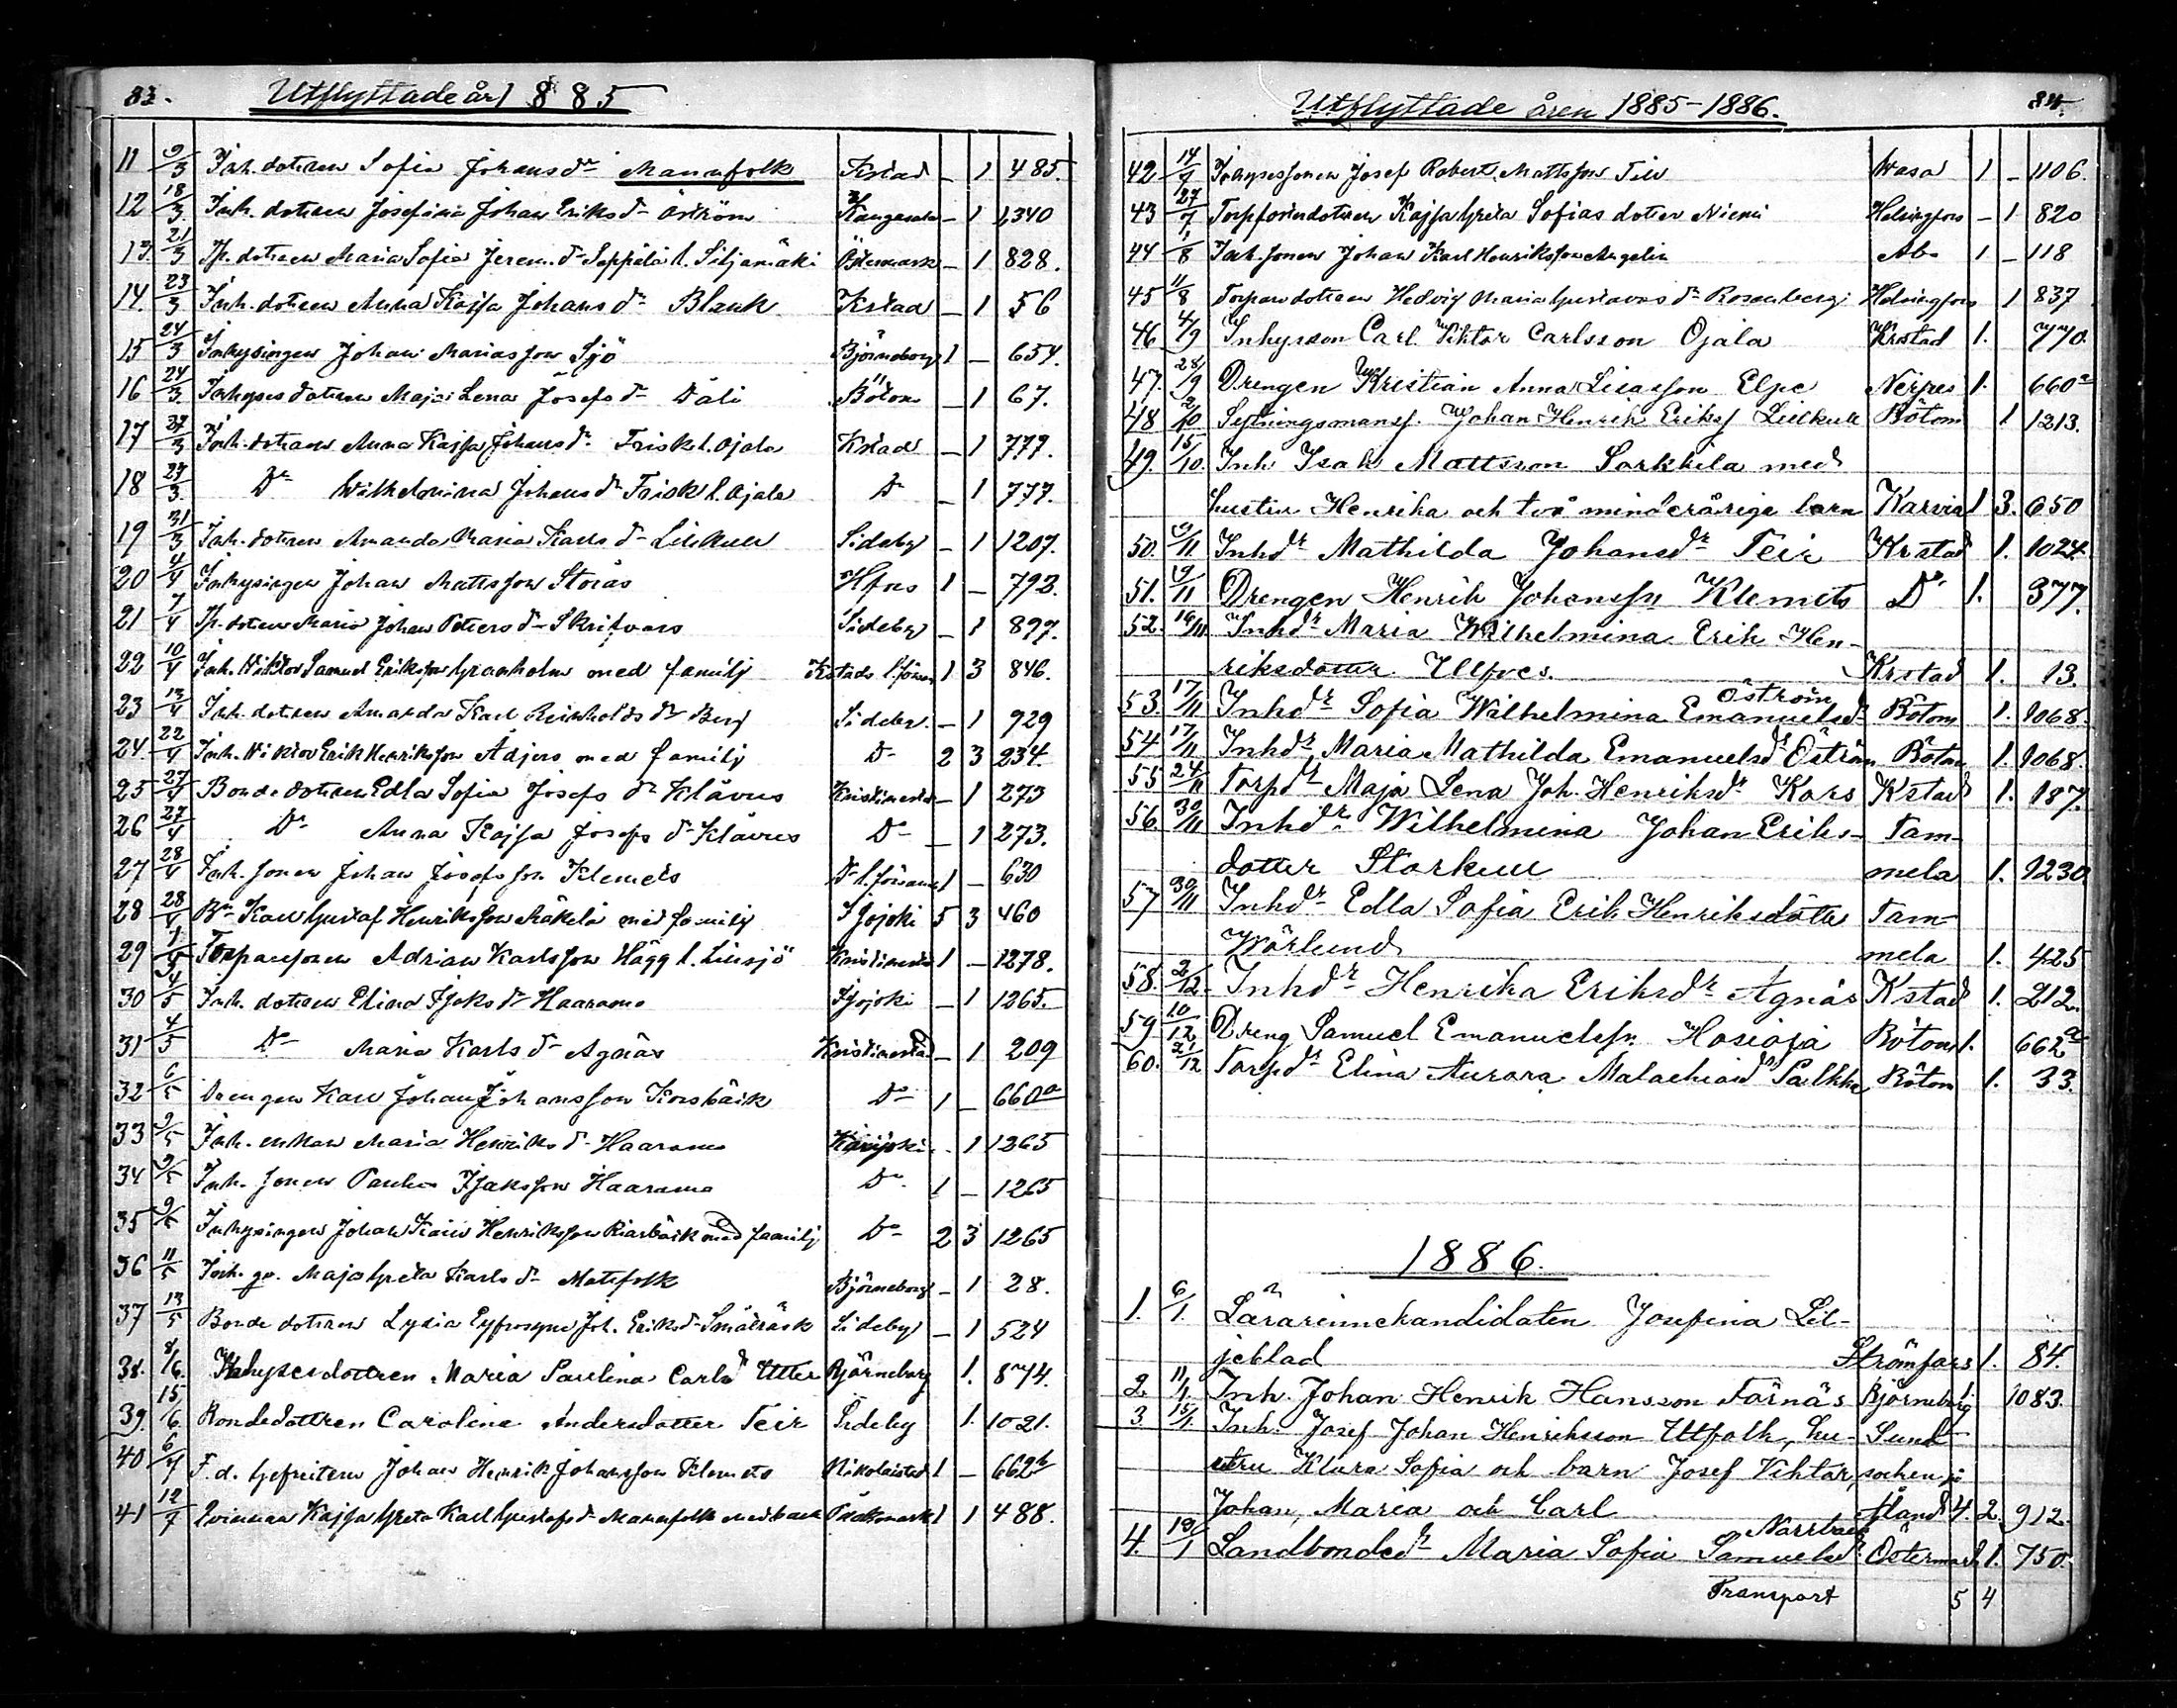 83.
Utflyttade år 1885
11 9/3 Inh. dottren Sofia Johansdr Mannfolk Kstad – 1 485.
12 18/3 Inh. dottren Josefina Johan Eriksdr Öström – 1 1340
13. 21/3 Tp. dottren Maria Sofia Jerem.dr Seppälä l. Siljamäki Östermark – 1 828.
14. 23/3 Inh. dottren Anna Kajsa Johansdr Blank Kstad – 1 56
15 24/3 Inhysingen Johan Mariasson Sjö Björneborg 1 – 654.
16 24/3 Inhyses dottren Maja Lena Josefsdr Däli Bötom – 1 67.
17 27/3 Inh. dottren Anna Kajsa Johansdr Frisk l. Ojala Kstad – 1 777.
18 27/3. Do Wilhelmina Johansdr Frisk l. Ojala Do – 1 777.
19 31/3 Inh. dottren Amanda Maria Karlsdr Lillkull Sideby – 1 1207.
20 4/4 Inhysingen Johan Mattsson Storås Hfors 1 – 793.
21 7/4 Tp. dottren Maria Johan Petersdr Skrifvars Sideby – 1 897.
22 10/4 Inh. Viktor Samuel Eriksson Granholm med familj Kstads l.förs. 1 3 846.
23 13/4 Inh. dottren Amanda Karl Reinholdsdr Berg Sideby. – 1 929
24. 22/4 Inh. Viktor Erik Henriksson Ådjers med familj Do 2 3 234.
25 27/4 Bonde dottren Edla Sofia Josefsdr Klåvus Kristinestad – 1 273
26 27/4 Do Anna Kajsa Josefsdr Klåvus Do – 1 273.
27 28/4 Inh. sonen Johan Josefsson Klemets Do l. församl 1 – 630
28 28/4 Bn Karl Gustaf Henriksson Mäkelä med familj Ijojoki 5 3 460
29 Torparsonen Adrian Karlsson Hägg l. Lillsjö Kristinestad 1 – 1278.
30 4/5 Inh. dottren Elina Isaksdr Haarama Ijojoki – 1 1265.
31 4/5 Do Maria Karlsdr Agnäs Kristinestad – 1 209
32 6/5 Drengen Karl Johan Johansson Korsbäck Do 1 – 660a
33 9/5 Inh. enkan Maria Henriksdr Haarama – 1 1265
34 9/5 Inh. sonen Paulus Isaksson Haarama Do 1 – 1265
35 9/5 Inhysingen Johan Karl Henriksson Riasbäck med familj Do 2 3 1265
36 11/5 Inh. qv. Maja Greta Karlsdr Mattfolk Björneborg – 1 28.
37 13/5 Bonde dottren Lydia Eyfrosyne Joh. Eriksdr Småträsk Sideby – 1 524
38. 8/6. Inhysesdottren Maria Paulina Carlsdr Utter Björneborg 1. 874.
39. 15/6. Bondedottren Carolina Andersdotter Teir Sideby 1. 1021.
40 6/7 F. d. Gefreitern Johan Henrik Johansson Klemets Nikolaistad 1 – 662b
41 12/7 Qvinnan Kajsa Greta Karl Gustafsdr Mannfolk med barn Påskmark 1 1 488.
Utflyttade åren 1885–1886.
84.
42 14/7 Inhysessonen Josef Robert Mattsson Teir Wasa 1 – 1106.
43 27/7 Torpforedottren Kajsa Greta Sofias dotter Niemi Helsingfors – 1 820
44 /8 Inh. sonen Johan Karl Henriksson Angelin Åbo 1 – 118
45 11/8 Torparedottren Hedvig Maria Gustavasdr Rosenberg Helsingfors 1 837
46 4/9 Inhysson Carl Viktor Carlsson Ojala Krstad 1. 770.
47. 28/9 Drengen Kristian Anna Lisasson Elge Nerpes 1. 660a
48 2/10 Sytningsmans. Johan Henrik Erikss Lillkull Bötom 1 1213.
49. 15/10. Inh. Isak Mattsson Sarkkila med
hustru Henrika och två minderåriga barn Karvia 1 3. 650
50. 9/11. Inhdr Mathilda Johansdr Teir Krstad 1. 1024.
51. 9/11 Drengen Henrik Johanssn Klemets Do 1. 377.
52. 16/11 Inhdr Maria Wilhelmina Erik Hen-
riksdotter Ulfves Krstad 1. 13.
53. 17/11 Inhdr Sofia Wilhelmina Emanuelsdr Öström Bötom 1. 1068.
54 17/11 Inhdr Maria Mathilda Emanuelsdr Öström Bötom 1. 1068.
55 24/11 Torpdr Maja Lena Joh. Henriksdr Kors Kstad 1. 187.
56. 30/11 Inhdr Wilhelmina Johan Eriks- Tam-
dotter Storkull mela 1. 1230
57 30/11 Inhdr Edla Sofia Erik Henriksdotter Tam-
Wärlund mela 1. 425
58. 2/12. Inhdr Henrika Eriksdr Agnäs Kstad 1. 212.
59 10/12 Dreng Samuel Emanuelssn Hosioja Bötom 1. 662a
60. 21/12 Torpdr Elina Aurora Malachiasdr Pälkke Bötom 1. 33.
1886.
1. 6/1. Lärarinnekandidaten Josefina Lil-
jeblad Strömfors 1. 84.
2. 11/1. Inh. Johan Henrik Hansson Törnäs Björneborg 1 1083.
3. 15/1. Inh. Josef Johan Henriksson Uttfolk, hu- Sund
stru Klara Sofia och barn Josef Viktor, socken på
Johan, Maria och Carl Åland 4. 2. 912.
4. 19/1 Landbondedr Maria Sofia Samuelsdr Norrback Östermark 1. 750.
Transport 5 4